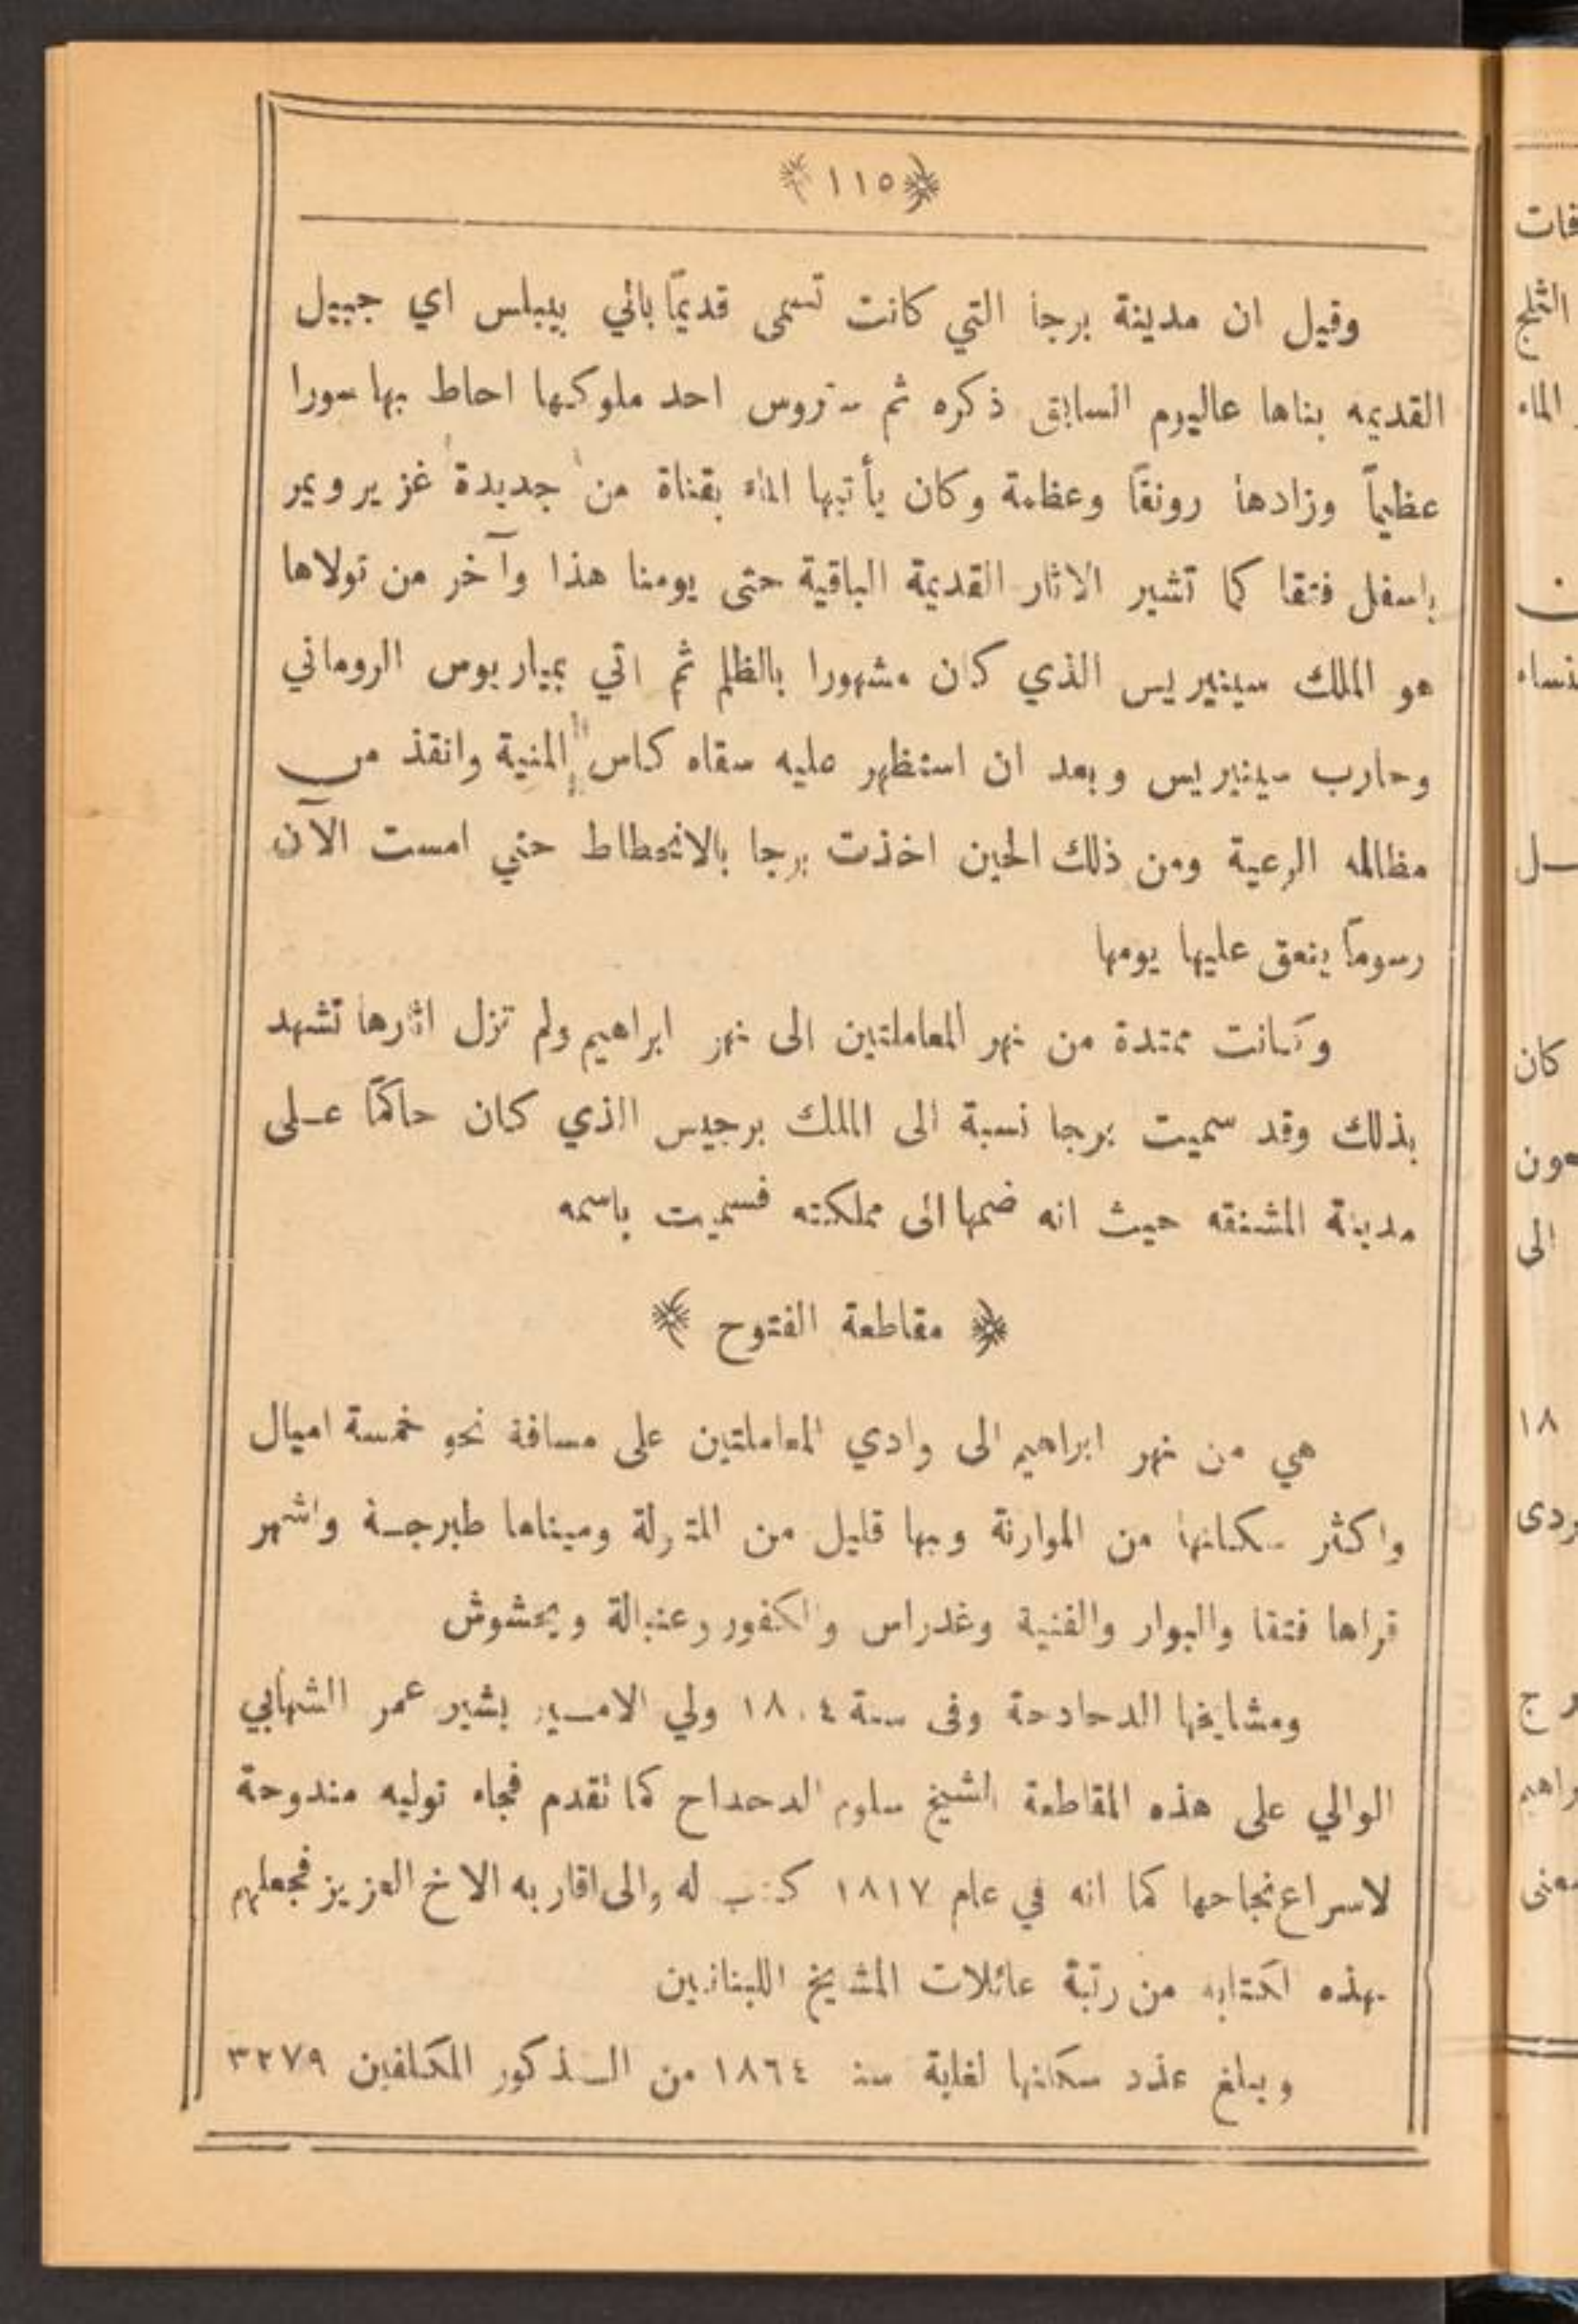 ﴿١١٥﴾
وقيل ان مدينة برجا التي كانت تسمى قديمًا بالي بيبلس اي جبيل
القديمه بناها عاليوم السابق ذكره ثم ستروس احد ملوكها احاط بها سورا
عظيماً وزادها رونقاً وعظمة وكان يأتيها الماء بقناة من جديدة غزير ويمر
باسفل فتقا كما تشير الاثار القديمة الباقية حتى يومنا هذا وآخر من تولاها
هو الملك سينيريس الذي كان مشهورا بالظلم ثم اتي بمياربوس الروماني
وحارب سينيريس وبعد ان استظهر عليه سقاه كاس المنية وانقذ من
مظالمه الرعية ومن ذلك الحين اخذت برجا بالانحطاط حتي امست الآن
رسوماً ينعق عليها يومها
وكانت ممتدة من نهر المعاملتين الى نهر ابراهيم ولم تزل اثارها تشهد
بذلك وقد سميت برجا نسبة الى الملك برجيس الذي كان حاكمًا عـلى
مدينة المشنقه حيث انه ضمها الى مملكته فسميت باسمه
﴿ مقاطعة الفتوح ﴾
هي من نهر ابراهيم الى وادي المعاملتين على مسافة نحو خمسة اميال
واكثر سكانها من الموارنة وبها قليل من المتاولة وميناها طبرجـة واشهر
قراها فتقا والبوار والغنية وغدراس والكفور وعنبالة ويحشوش
ومشايخها الدحادحة وفى سنة ١٨٠٤ ولي الامـير بشير عمر الشهابي
الوالي على هذه المقاطعة الشيخ سلوم الدحداح كما تقدم فجاه توليه مندوحة
لاسراع نجاحها كما انه في عام ١٨١٧ كتب له والى اقاربه الاخ العزيز فجعلهم
بهذه اكتابه من رتبة عائلات المشايخ اللبنانيين
ويبلغ عدد سكانها لغاية سنة ١٨٦٤ من الـذكور المكلفين ٣٢٧٩